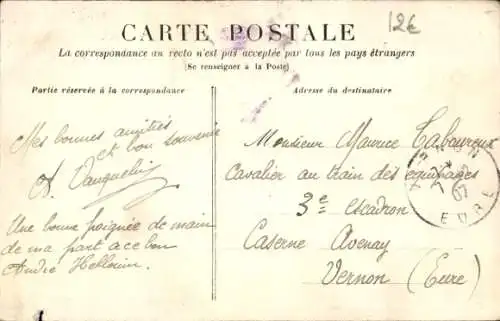 12€
CARTE POSTALE
La correspondance au recto n'est pas acceptée par tous les pays étrangers
(Se renseigner à la Poste)
Partie réservée à la correspondance
Adresse du destinataire
Mes bonnes amitiés
et bon souvenir
A. Vauquelin
Une bonne poignée de main
de ma part a ce bon
André Hellouin
Monsieur Maurice Taboureux
Cavalier au train des équipages
3e escadron
Caserne Avenay
Vernon (Eure)
07
EURE